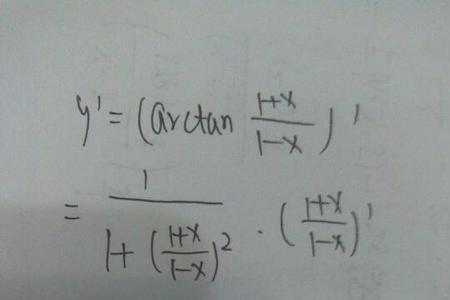 y' = (arctan \frac{1+x}{1-x})'
= \frac{1}{1+(\frac{1+x}{1-x})^2} \cdot (\frac{1+x}{1-x})'